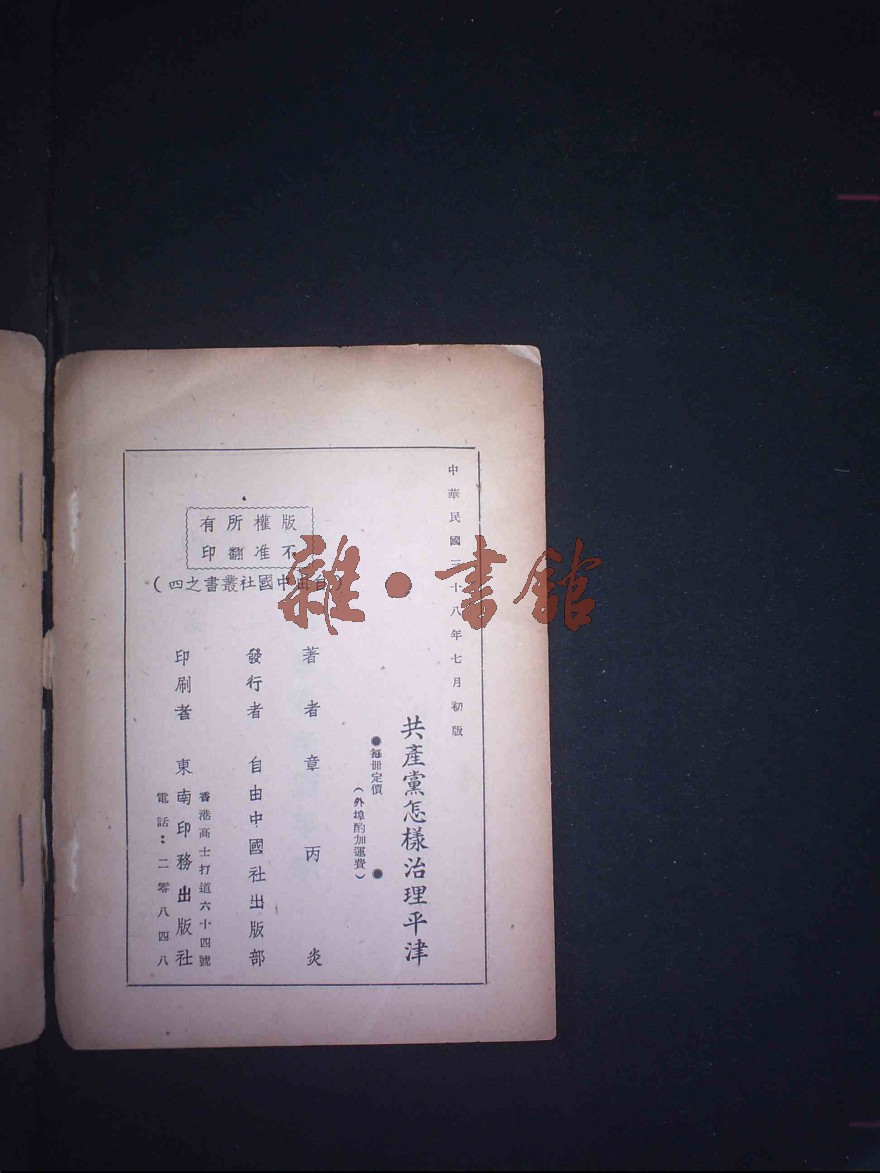 中華民國三十八年七月初版
共產黨怎樣治理平津
●每冊定價　●
（外埠酌加運費）
著者章丙炎
發行者　自由中國社出版部
印刷者　東南印務出版社
香港高士打道六十四號
電話：二零八四八
版權所有
不准翻印
（自由中國社叢書之四）
雜·書館